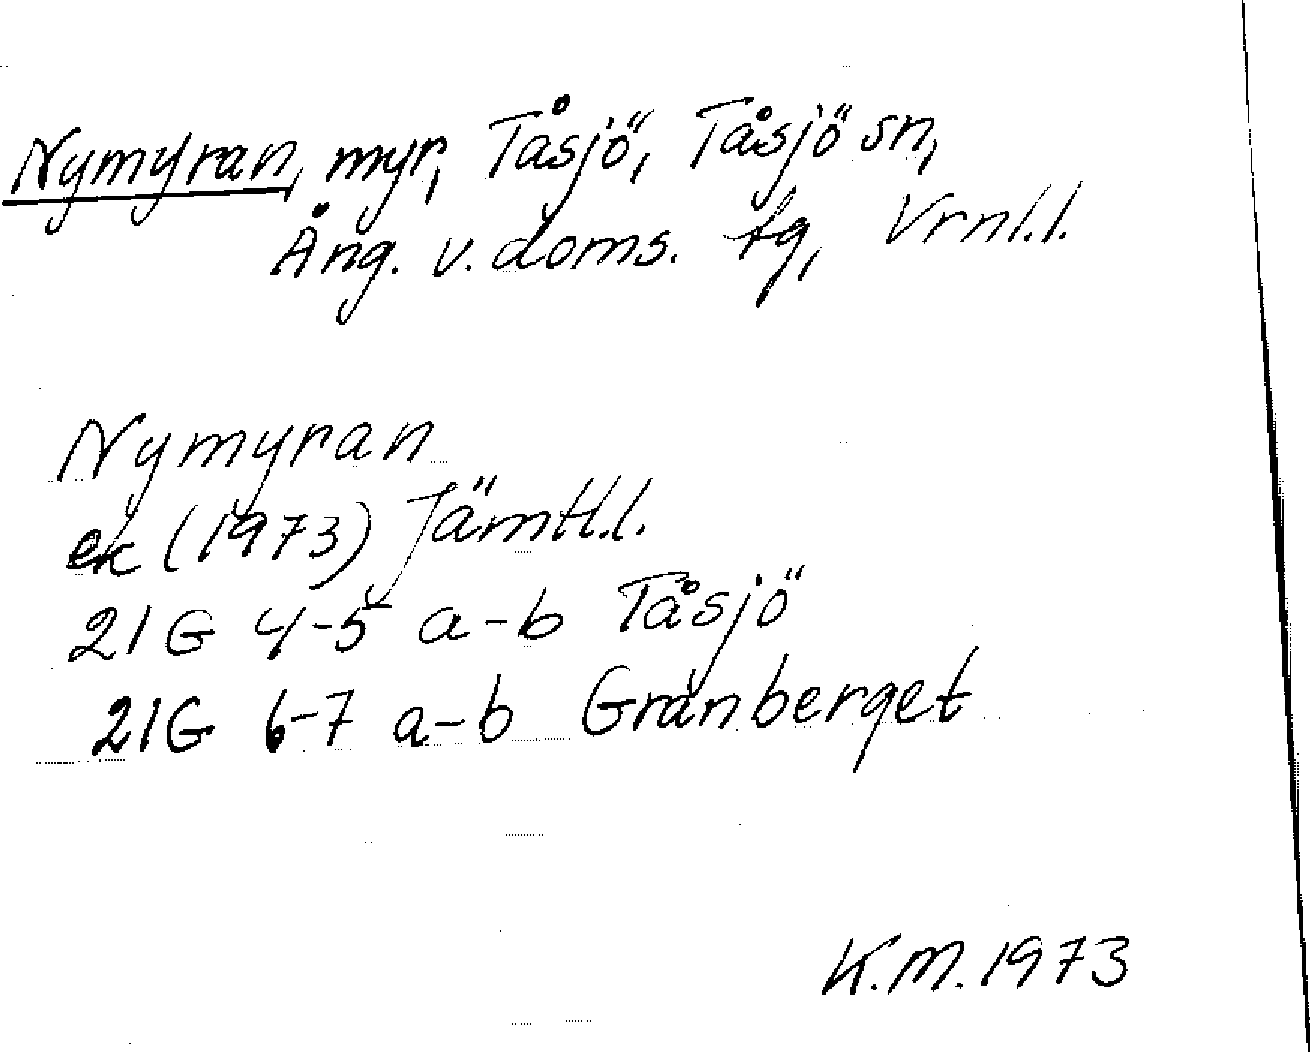 Nymyran, myr, Tåsjö, Tåsjö sn,
Ång. v. doms. tg, Vrnl.l.
Nymyran
ek (1973) Jämtl.l.
21G 4-5 a-b Tåsjö
21G 6-7 a-b Granberget
K.M. 1973